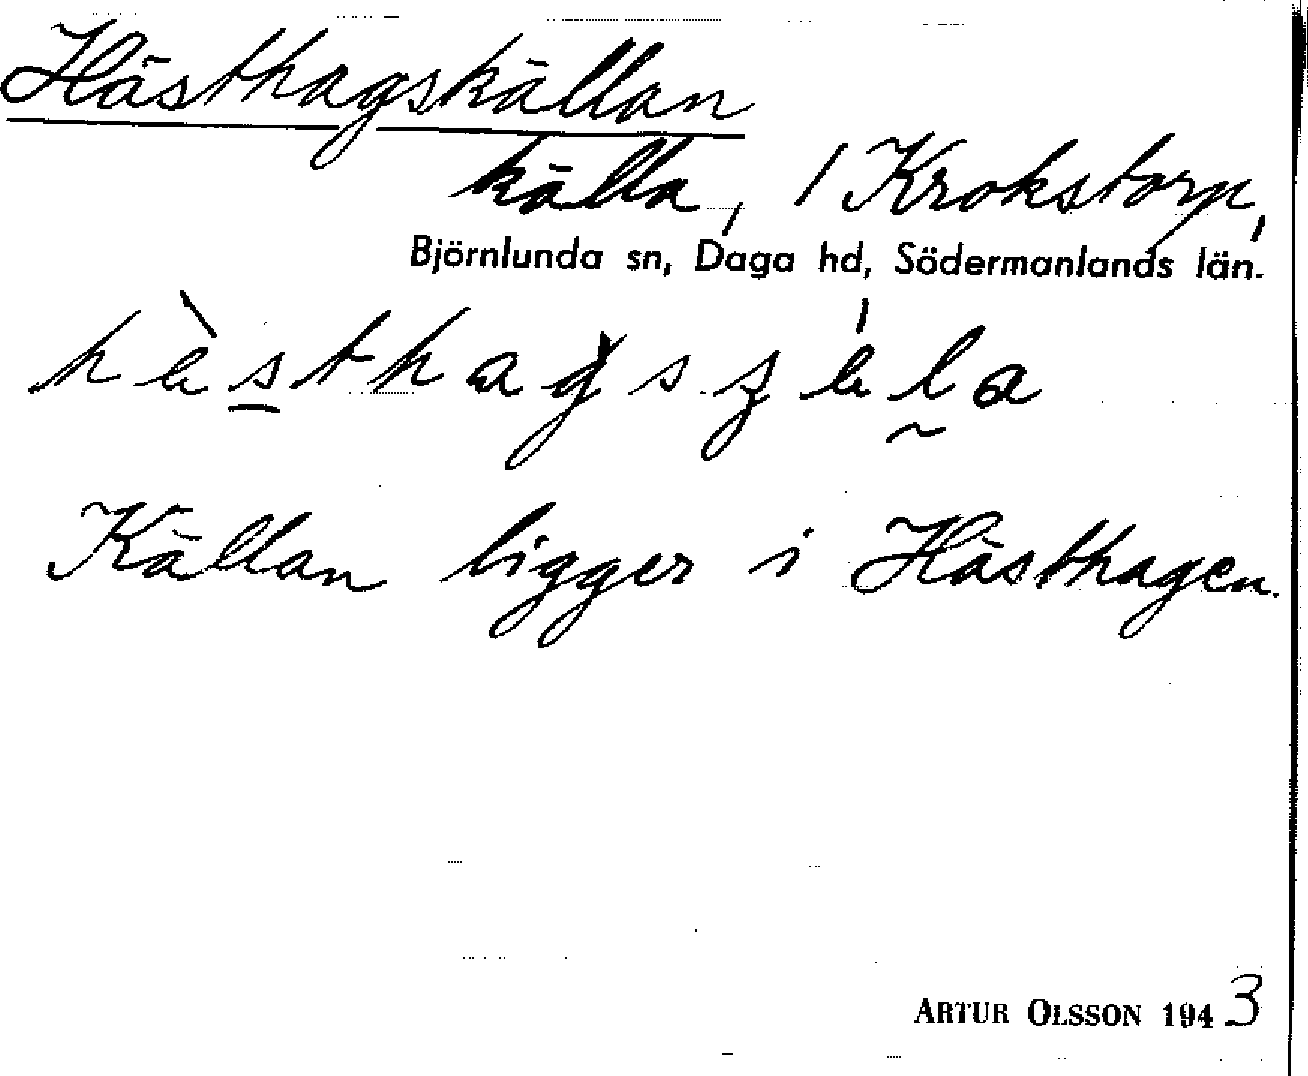 Hästhagskällan
källa, / Krokstorp,
Björnlunda sn, Daga hd, Södermanlands län.
Källan ligger i Hästhagen.
ARTUR OLSSON 1943